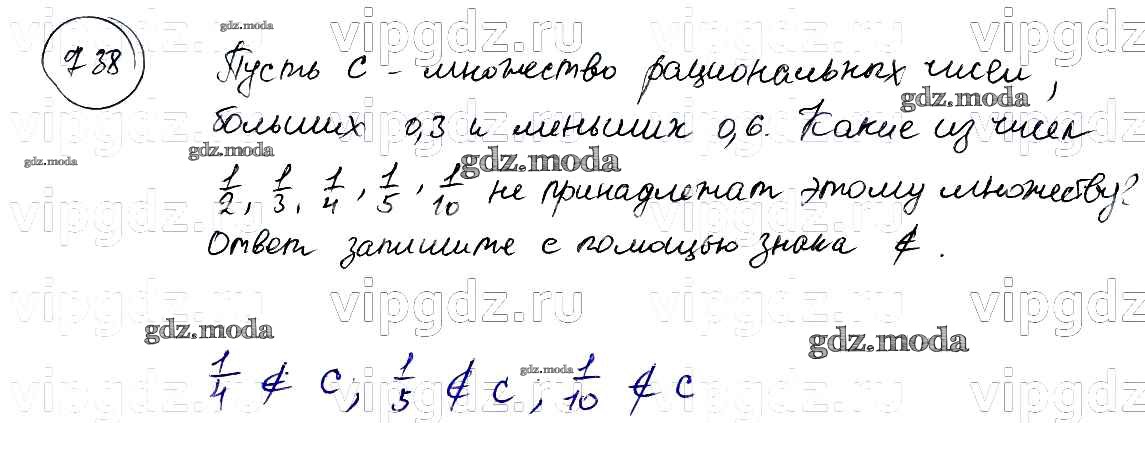 738
Пусть C - множество рациональных чисел,
больших 0,3 и меньших 0,6. Какие из чисел
1/2, 1/3, 1/4, 1/5, 1/10 не принадлежат этому множеству?
Ответ запишите с помощью знака ∉.
1/4 ∉ C; 1/5 ∉ C; 1/10 ∉ C
gdz.moda
vipgdz.ru